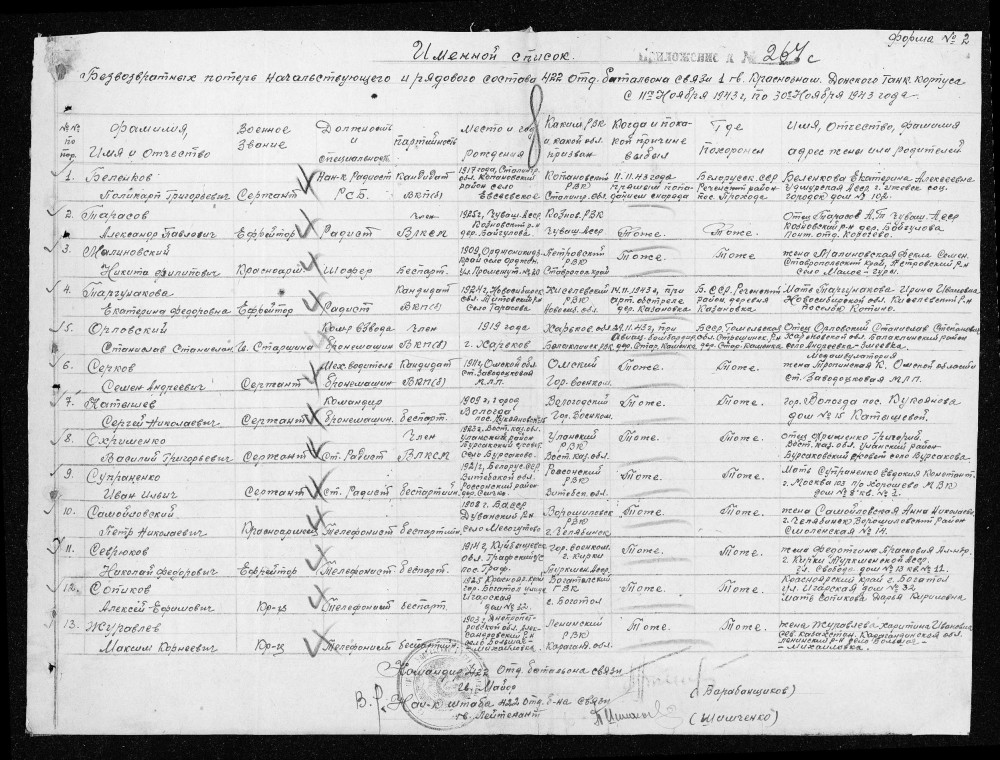 Форма № 2
Именной список.
Приложение к № 267с
Безвозвратных потерь начальствующего и рядового состава 422 Отд. батальона связи 1 гв. Краснознам. Донского Танк. корпуса
с 11го Ноября 1943 г. по 30е Ноября 1943 года.
№№ по пор. Фамилия, Имя и Отчество Военное Звание Должность и специальность партийность Место и год рождения Каким РВК и какой обл. призван Когда и по какой причине выбыл Где похоронен Имя, Отчество, фамилия адрес жены или родителей
1. Беленков Поликарп Григорьевич Сержант Нач-к Радиост РСБ. Кандидат ВКП(б) 1917 года, Сталингр. обл. Котановский район село Евсеевское Котановский РВК Сталингр. обл. 11.11.43 года прямым попаданием снаряда Белорусск. ССР Речицкий район пос. Проходы Беленкова Екатерина Алексеевна Удмурская Асср г. Ижевск соц. городок дом № 102.
2. Тарасов Александр Павлович Ефрейтор Радист Член ВЛКСМ 1925 г., Чуваш. Асср. Козловский р-н дер. Байгулова Козлов. РВК Чуваш. Асср Тоже. Тоже. Отец Тарасов А.Т. Чуваш. Асср Козловский р-н дер. Байгулова Почт. отд. Карачево.
3. Малиновский Никита Филипович Красноарм. Шофер Беспарт. 1909, Орджоникидз. Край село Ордж. ул. Промснут. № 20 Петровский РВК Ставропол. край Тоже. Тоже. жена Малиновская Фекла Семен. Ставропольский Край, Петровский р-н село Малое-
4. Таргунакова Екатерина Федоровна Ефрейтор Радист Кандидат ВКП(б) 1924 г, Новосибирск. обл. Титовский р-н село Тарасова Киселевский РВК Новосиб. обл. 14.11.1943 г, при арт. обстреле дер. Казановка Б.ССР. Речицкий район деревня Казановка Мать Таргунакова Ирина Ивановна Новосибирской обл. Киселевский р-н Поселок Котино.
5. Орловский Станислав Станислав. Гв. Старшина Комр взвода Бронемашин Член ВКП(б) 1919 года г. Харьков Харьков. обл Балаклийск. РВК 29.11.43 г, при Авиац. Бомбардир. дер. Стар. Каменка Бсср. Гомельская обл. Стрешинск. р-н дер. Стар. Каменка Отец Орловский Станислав Степанович Харьковской обл. Балаклийский район село Андреевка-Змеевка
6. Серков Семен Андреевич Сержант Мех водитель Бронемашин Кандидат ВКП(б) 1911 г, Омской обл. ст. Заводоуковой М.Л.П. Омский Гор. военком. Тоже. Тоже. жена Тропинская К. Омской области ст. Заводоуковая М.Л.П.
7. Катышев Сергей Николаевич Сержант Командир Бронемашин. беспарт. 1909 г, город Вологда Вологодский Гор. Военком. Тоже. Тоже. гор. Вологда дом № 15 Катышевой.
8. Охрименко Василий Григорьевич Сержант Ст. Радист Член ВЛКСМ 1923 г. Вост. каз. обл. Уланский район село Бурсаково. Уланский РВК Вост. Каз. обл. Тоже. Тоже. отец Охрименко Григорий. Вост. каз. обл. Уланский район Бурсаковский с/совет село Бурсаково.
9. Супраненко Иван Ильич Сержант Ст. Радист беспартийн. 1921 г, Белорус. ССР Витебской обл. Россонский район Россонский РВК Витебск. обл. Тоже. Тоже. Мать Супраненко Евдокия Константин. г. Москва 103 п/о Хорошево МВК дом № 8а кв. № 2.
10. Самойловский Петр Николаевич Красноармеец Телефонист беспартийн. 1908 г. Б.а.ССР Дуванский р-н Село Месягутово Ворошиловск РВК г. Челябинск Тоже. Тоже. жена Самойловская Анна Николаевна г. Челябинск Ворошиловский район Смоленская № 14.
11. Севрюков Николай Федорович Ефрейтор Телефонист беспарт. 1914 г, Куйбышевск. обл. пос. Граф. Гор. Военком. г. Кирки Туркмен. Асср Тоже. Тоже. жена Федоткина Прасковия Г. Кирки Туркменской Асср. ул. Свободы дом № 13 кв. № 11.
12. Сопиков Алексей Ефимович Кр-ц Телефонист беспарт. 1925 Краснояр. край гор. Боготол улица Игарская дом № 32. Боготольский ГВК г. Боготол Тоже. Тоже. Красноярский край г. Боготол ул. Игарская дом № 32 Мать Сопикова Дарья Кириловна
13. Журавлев Максим Корнеевич Кр-ц Телефонист беспартийн. 1903 г. Днепропетровской обл. село Большая-Михайловка Ленинский РВК Караган. обл. Тоже. Тоже. жена Журавлева Харитина Ивановна Сев. Казахстан. Карагандинская обл. Ленинский р-н село Большая-Михайловка.
Командир 422 Отд. батальона связи
гв. Майор (Барабанщиков)
В.р. Нач-к штаба 422 Отд. б-на связи
гв. Лейтенант (Шимченко)